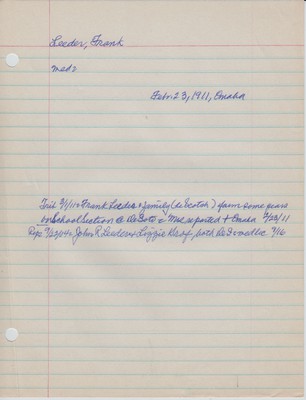 Leeder, Frank
Feb. 23, 1911, Omaha
Trib 3/1/11 Frank Leeder & family (de Soto) farm some years
on School Section @ DeSoto & reported + Omaha 2/23/11
John R. Leeder & Lizzie both DeSoto 7/16